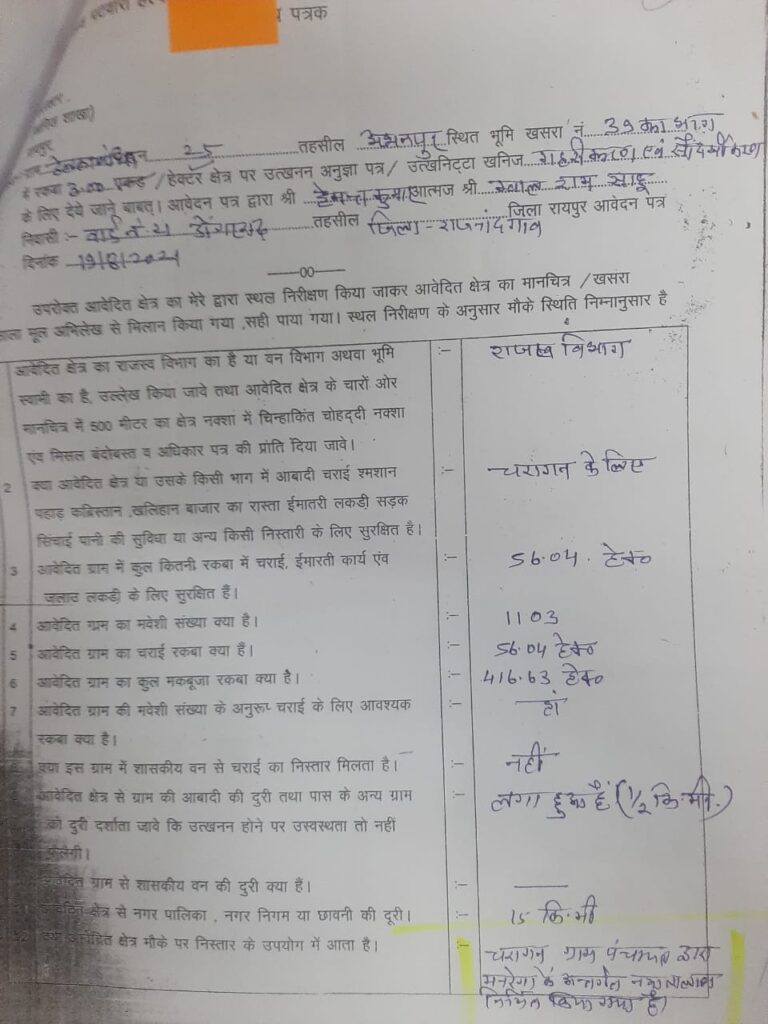 पत्रक
शाखा)
25 तहसील अभनपुर स्थित भूमि खसरा नं. 39 का भाग
रकबा 3.00 एकड/हेक्टॅर क्षेत्र पर उत्खनन अनुज्ञा पत्र/ उत्खनिट्टा खनिज गहरीकरण एवं सौंदर्यीकरण
के लिए देये जाने बाबत्। आवेदन पत्र द्वारा श्री हेमन्त कुमार आत्मज श्री राम साहू
निवासी :- वार्ड नं तहसील जिला रायपुर आवेदन पत्र
जिला - राजनांदगांव
दिनांक 19/8/2021
——00——
उपरोक्त आवेदित क्षेत्र का मेरे द्वारा स्थल निरीक्षण किया जाकर आवेदित क्षेत्र का मानचित्र /खसरा
मूल अभिलेख से मिलान किया गया ,सही पाया गया। स्थल निरीक्षण के अनुसार मौके स्थिति निम्नानुसार है
आवेदित क्षेत्र का राजस्व विभाग का है या वन विभाग अथवा भूमि :- राजस्व विभाग
स्वामी का है, उल्लेख किया जावे तथा आवेदित क्षेत्र के चारों ओर
मानचित्र में 500 मीटर का क्षेत्र नक्शा में चिन्हाकिंत चोहद्दी नक्शा
एंव मिसल बंदोबस्त व अधिकार पत्र की प्रांति दिया जावे।
2 क्या आवेदित क्षेत्र या उसके किसी भाग में आबादी चराई श्मशान :- चरागन के लिए
पहाड़ कब्रिस्तान ,खलिहान बाजार का रास्ता ईमातरी लकडी सड़क
सिंचाई पानी की सुविधा या अन्य किसी निस्तारी के लिए सुरक्षित है।
3 आवेदित ग्राम में कुल कितनी रकबा में चराई, ईमारती कार्य एंव :- 56.04. हेक्ट
जलाउ लकडी के लिए सुरक्षित हैं।
4 आवेदित ग्राम का मवेशी संख्या क्या है। :- 1103
5 आवेदित ग्राम का चराई रकबा क्या है। :- 56.04 हेक्ट
6 आवेदित ग्राम का कुल मकबूजा रकबा क्या है। :- 416.63 हेक्ट
7 आवेदित ग्राम की मवेशी संख्या के अनुरूप चराई के लिए आवश्यक :- हां
रकबा क्या है।
क्या इस ग्राम में शासकीय वन से चराई का निस्तार मिलता है। :- नहीं
आवेदित क्षेत्र से ग्राम की आबादी की दुरी तथा पास के अन्य ग्राम :- लगा हुआ है (1/2 कि.मी.)
को दुरी दर्शाता जावे कि उत्खनन होने पर उस्वस्थता तो नहीं
फैलेगी।
आवेदित ग्राम से शासकीय वन की दुरी क्या है। :- ——
आवेदित क्षेत्र से नगर पालिका , नगर निगम या छावनी की दूरी। :- 15 कि.मी
आवेदित क्षेत्र मौके पर निस्तार के उपयोग में आता है। :- चरागन ग्राम पंचायत द्वारा
मनरेगा के अन्तर्गत नया तालाब
निर्मित किया गया है।